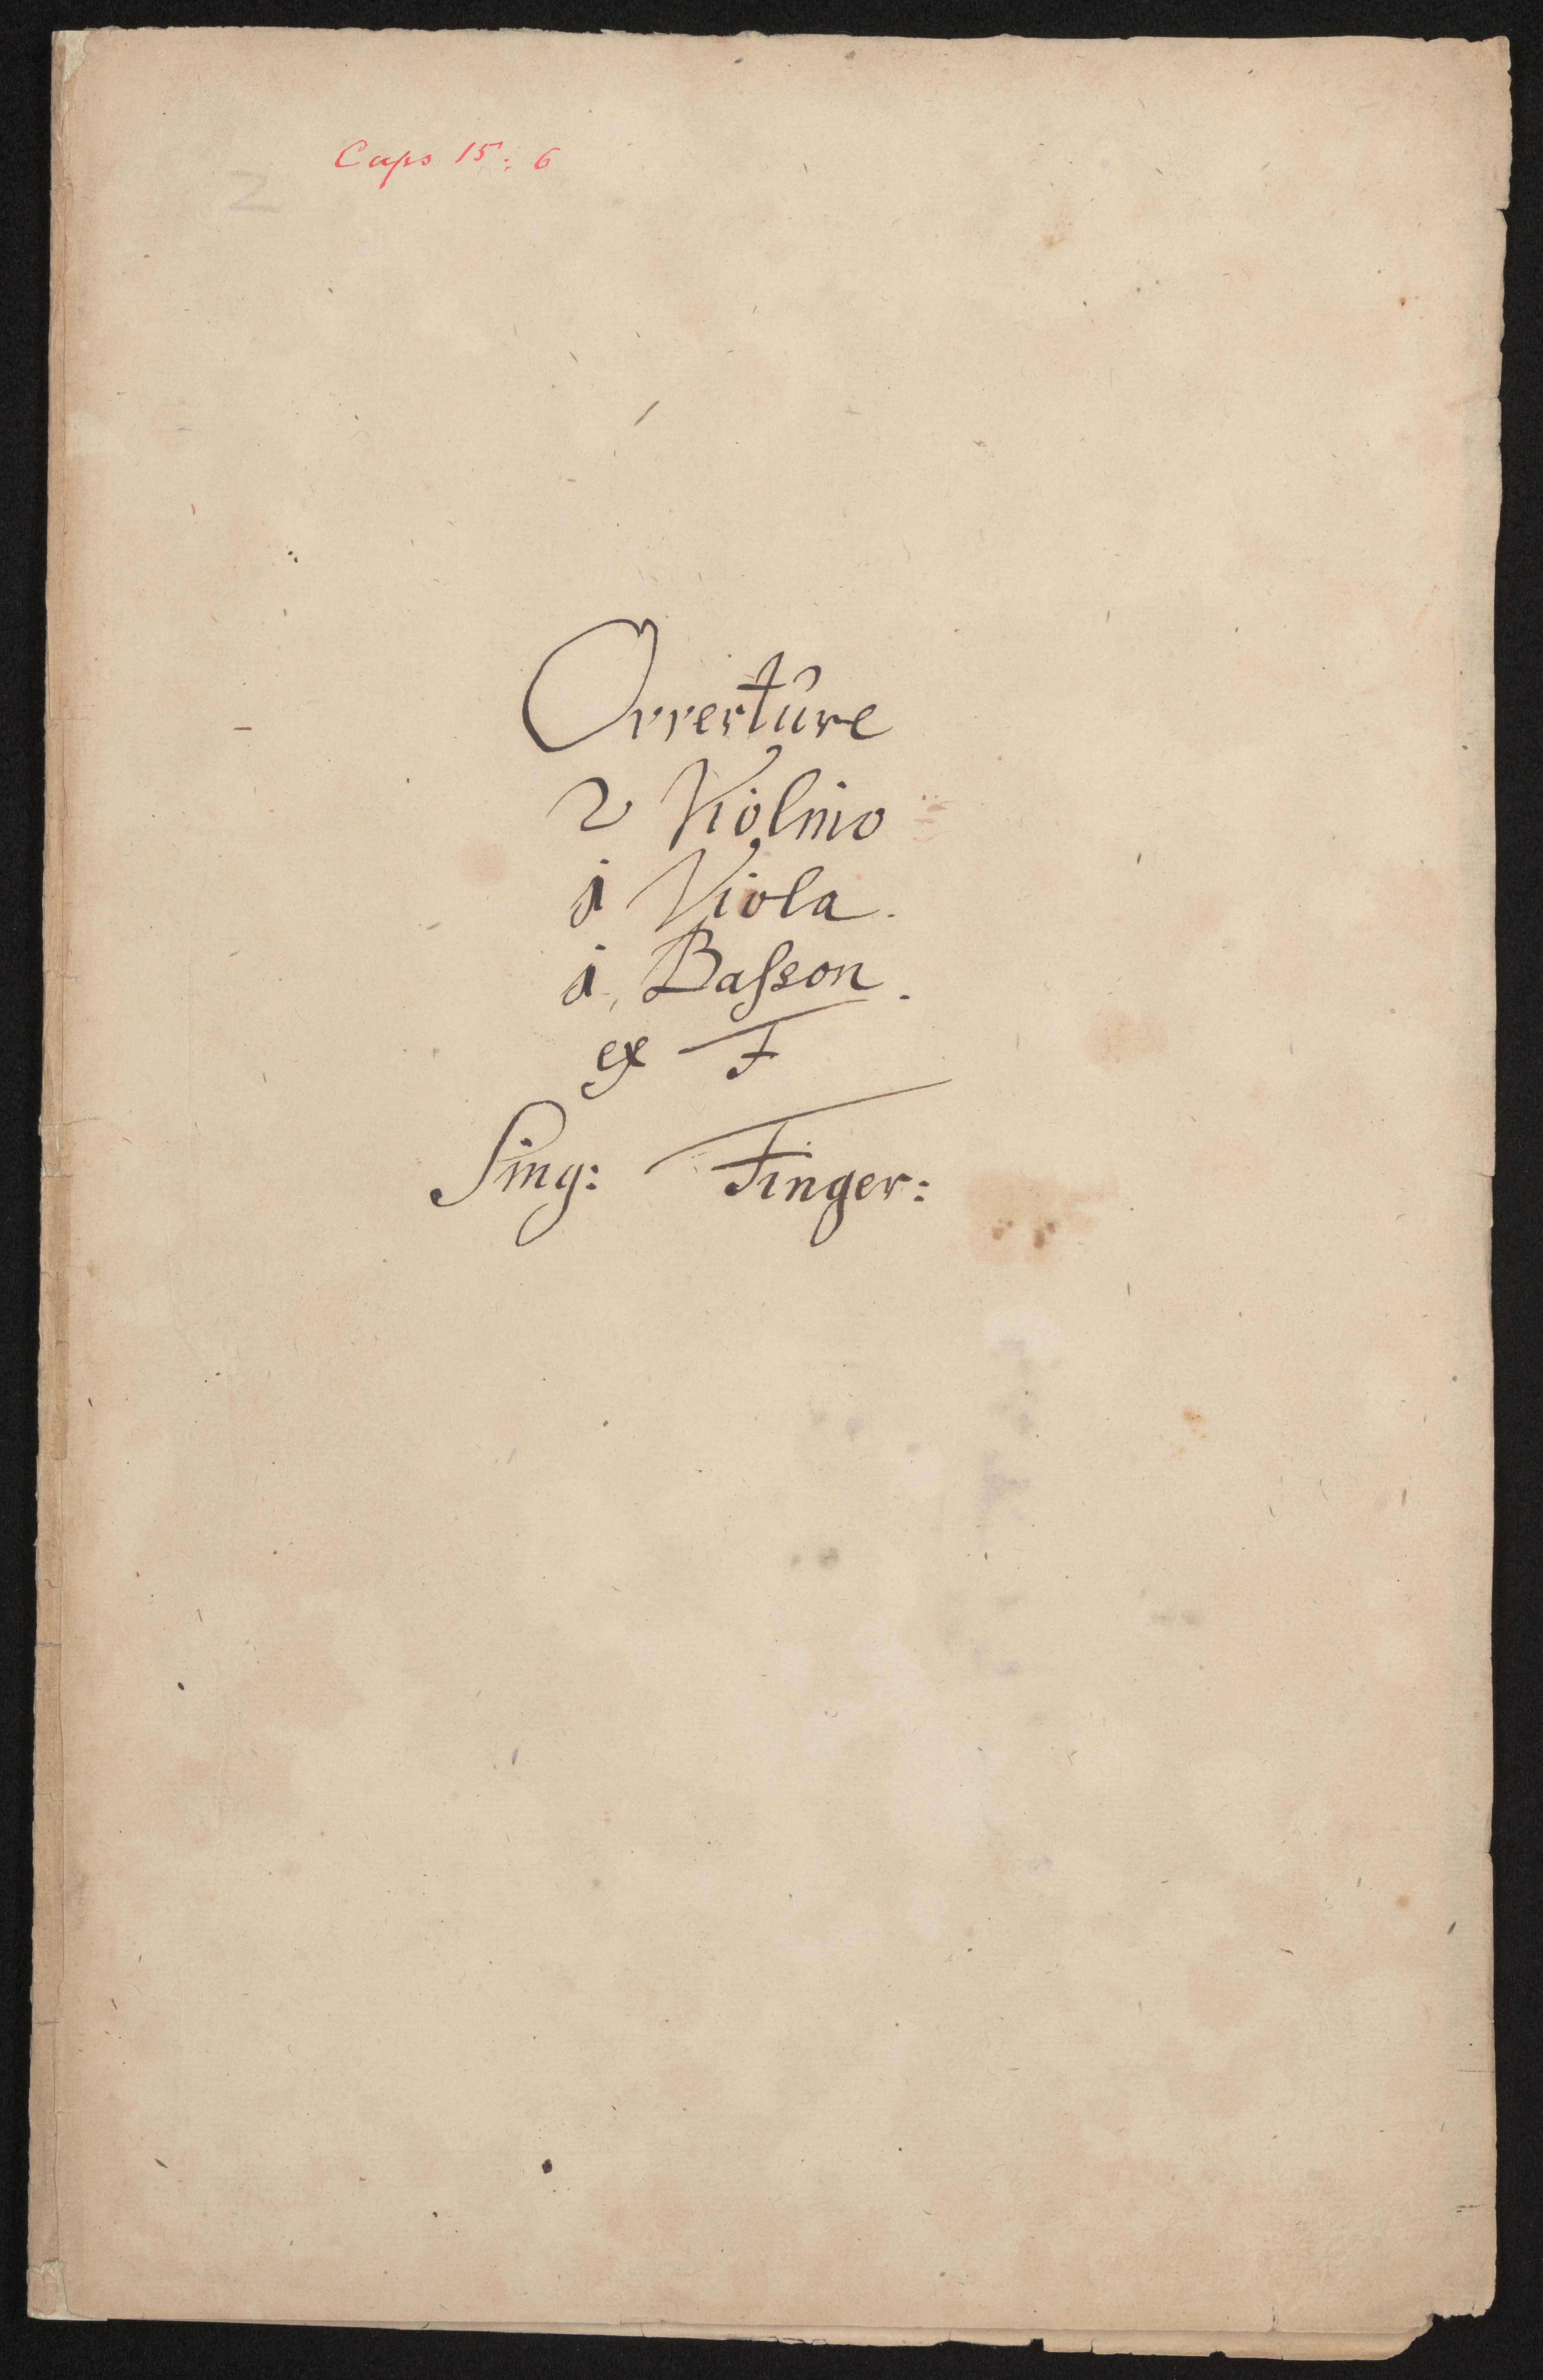 Caps 15: 6
2
Ovverture
2 Violino
1 Viola.
1, Baſson.
ex F
Sing: Finger: